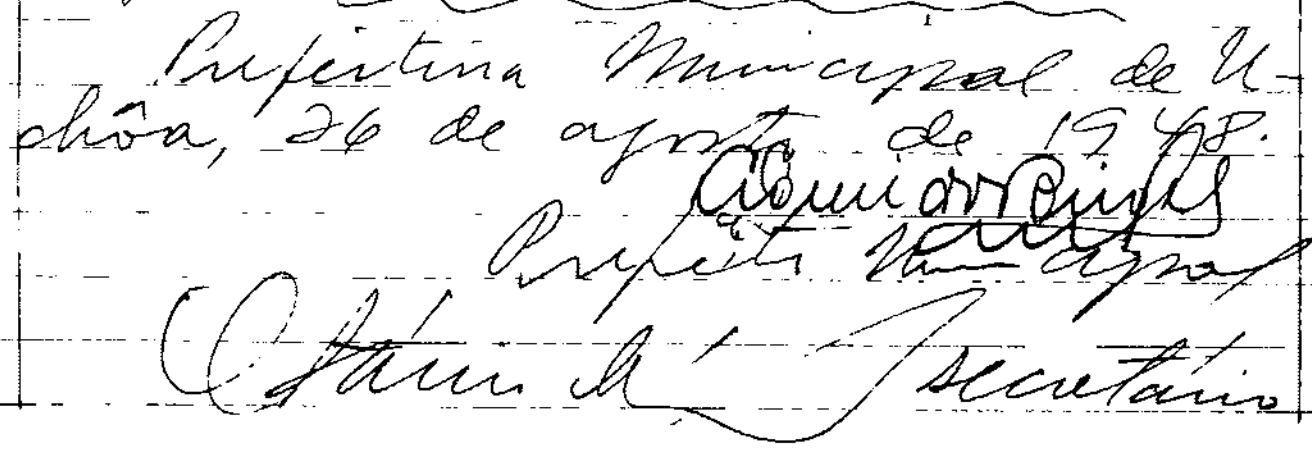 Prefeitura Municipal de U-
chôa, 26 de agosto de 1948.
Prefeito Municipal
secretário